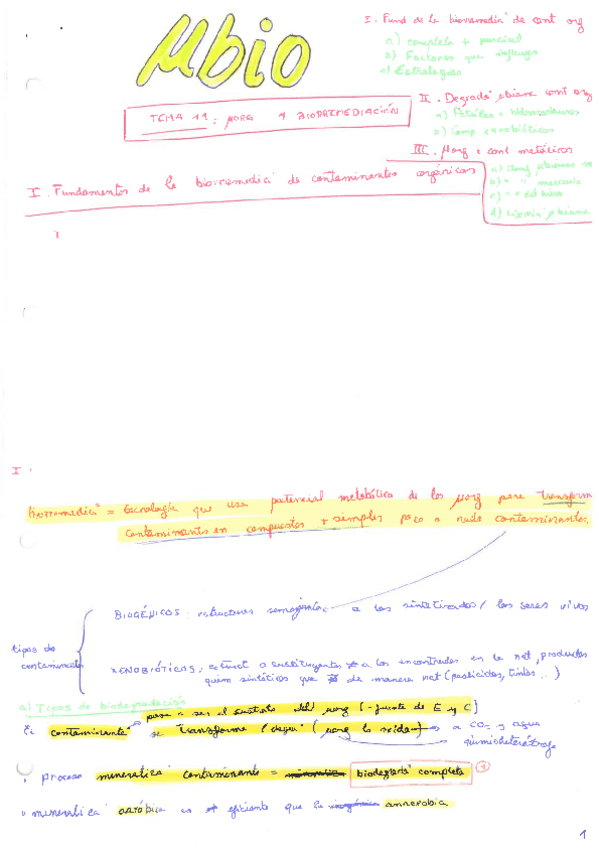 µbio
I. Fund de la biorremedia° de cont org
a) completa + parcial
b) Factores que influyen
c) Estrategias
TEMA 11: µORG Y BIORREMEDIACIÓN
II. Degrada° µbiana cont org
a) Petróleo e hidrocarburos
b) Comp xenobióticos
III. µorg y cont metálicos
b) " " mercurio
I. Fundamentos de la biorremedia° de contaminantes orgánicos
I.
biorremedia° = tecnología que usa potencial metabólico de los µorg para transform
contaminantes en compuestos + simples poco o nada contaminantes.
BIOGÉNICOS: estructura semejante a los sintetizados / los seres vivos
tipos de
contaminante
XENOBIÓTICOS: estruct o sustituyentes ≠ a los encontrados en la nat, productos
quim sintéticos que de manera nat (pesticidas, tintes...)
a) Tipos de biodegradación
pasa a ser el sustrato del µorg (-fuente de E y C)
contaminante se transforma / degra° (µorg lo oxidan) a CO2 y agua
quimioheterótrofo
proceso mineraliza° contaminante = biodegrada° completa
mineraliza° aeróbica es + eficiente que la anaerobia
1